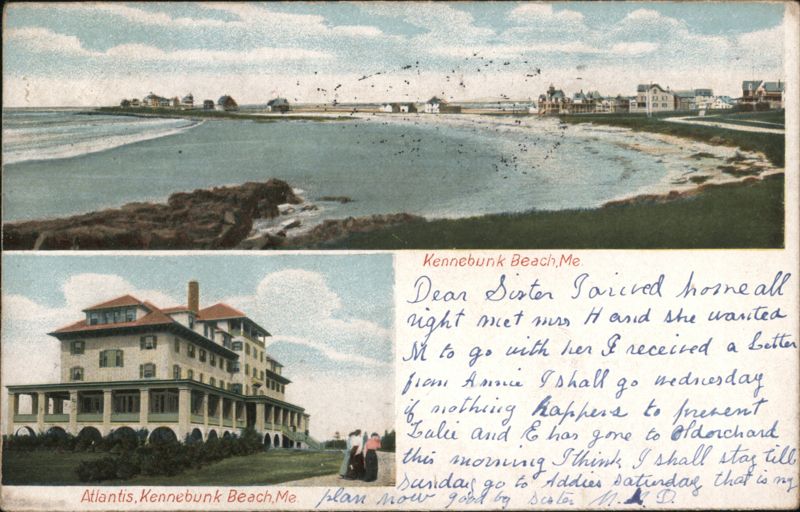 Kennebunk Beach, Me.
Dear Sister I arived home all
right met mrs H and she wanted
M to go with her I received a Letter
from Annie I shall go wednesday
if nothing happens to prevent
and E has gone to Oldorchard
this morning I think I shall stay till
sunday go to Addies saturday that is my
plan now good by sister
Atlantis, Kennebunk Beach, Me.